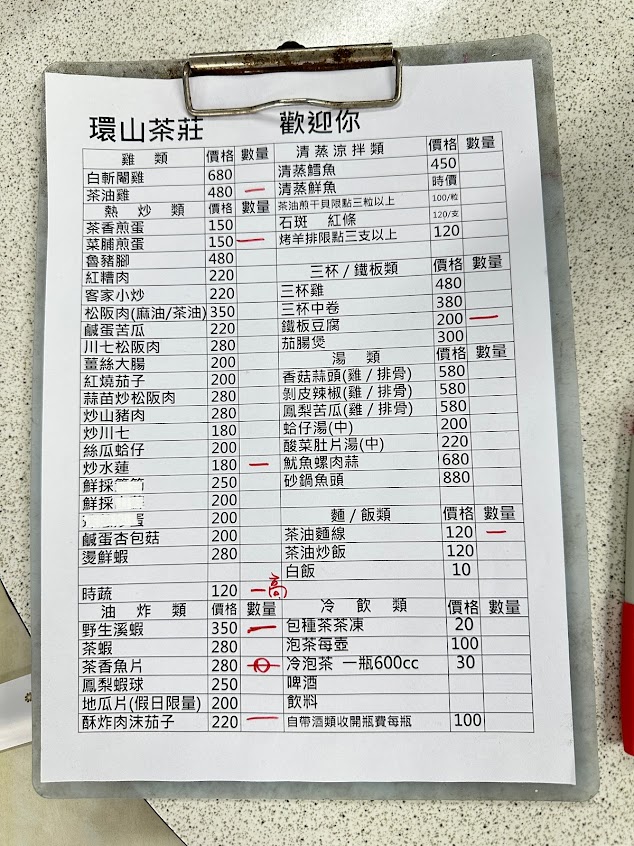 環山茶莊 歡迎你
雞 類 價格 數量
白斬閹雞 680
茶油雞 480 一
熱 炒 類 價格 數量
茶香煎蛋 150
菜脯煎蛋 150 一
魯豬腳 480
紅糟肉 220
客家小炒 220
松阪肉(麻油/茶油) 350
鹹蛋苦瓜 220
川七松阪肉 280
薑絲大腸 200
紅燒茄子 200
蒜苗炒松阪肉 280
炒山豬肉 280
炒川七 180
絲瓜蛤仔 200
炒水蓮 180 一
鮮採 250
鮮採 200
蛋 200
鹹蛋杏包菇 200
燙鮮蝦 280
時蔬 120 一高
油 炸 類 價格 數量
野生溪蝦 350 一
茶蝦 280
茶香魚片 280
鳳梨蝦球 250
地瓜片(假日限量) 200
酥炸肉沫茄子 220 一
清蒸涼拌類 價格 數量
清蒸鱈魚 450
清蒸鮮魚 時價
茶油煎干貝限點三粒以上 100/粒
石斑 紅條 120/支
烤羊排限點三支以上 120
三杯/鐵板類 價格 數量
三杯雞 480
三杯中卷 380
鐵板豆腐 200 一
茄腸煲 300
湯 類 價格 數量
香菇蒜頭(雞/排骨) 580
剝皮辣椒(雞/排骨) 580
鳳梨苦瓜(雞/排骨) 580
蛤仔湯(中) 200
酸菜肚片湯(中) 220
魷魚螺肉蒜 680
砂鍋魚頭 880
麵/飯類 價格 數量
茶油麵線 120 一
茶油炒飯 120
白飯 10
冷 飲 類 價格 數量
包種茶茶凍 20
泡茶每壺 100
冷泡茶 一瓶600cc 30
啤酒
飲料
自帶酒類收開瓶費每瓶 100